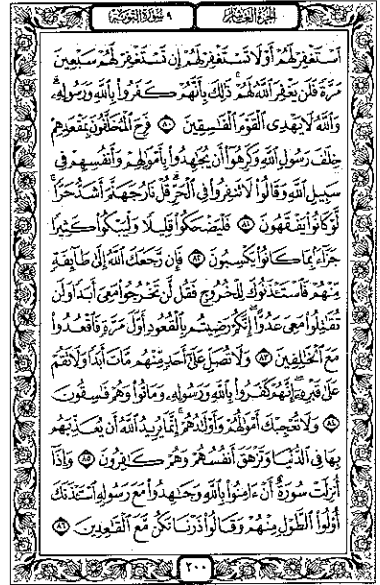 الجزء العاشر
٩ سورة التوبة
ٱسۡتَغۡفِرۡ لَهُمۡ أَوۡ لَا تَسۡتَغۡفِرۡ لَهُمۡ إِن تَسۡتَغۡفِرۡ لَهُمۡ سَبۡعِينَ
مَرَّةً فَلَن يَغۡفِرَ ٱللَّهُ لَهُمۡۚ ذَٰلِكَ بِأَنَّهُمۡ كَفَرُواْ بِٱللَّهِ وَرَسُولِهِۦۗ
وَٱللَّهُ لَا يَهۡدِي ٱلۡقَوۡمَ ٱلۡفَٰسِقِينَ ٨٠ فَرِحَ ٱلۡمُخَلَّفُونَ بِمَقۡعَدِهِمۡ
خِلَٰفَ رَسُولِ ٱللَّهِ وَكَرِهُوٓاْ أَن يُجَٰهِدُواْ بِأَمۡوَٰلِهِمۡ وَأَنفُسِهِمۡ فِي
سَبِيلِ ٱللَّهِ وَقَالُواْ لَا تَنفِرُواْ فِي ٱلۡحَرِّۗ قُلۡ نَارُ جَهَنَّمَ أَشَدُّ حَرّٗاۚ
لَّوۡ كَانُواْ يَفۡقَهُونَ ٨١ فَلۡيَضۡحَكُواْ قَلِيلٗا وَلۡيَبۡكُواْ كَثِيرٗا
جَزَآءَۢ بِمَا كَانُواْ يَكۡسِبُونَ ٨٢ فَإِن رَّجَعَكَ ٱللَّهُ إِلَىٰ طَآئِفَةٖ
مِّنۡهُمۡ فَٱسۡتَـٔۡذَنُوكَ لِلۡخُرُوجِ فَقُل لَّن تَخۡرُجُواْ مَعِيَ أَبَدٗا وَلَن
تُقَٰتِلُواْ مَعِيَ عَدُوًّاۖ إِنَّكُمۡ رَضِيتُم بِٱلۡقُعُودِ أَوَّلَ مَرَّةٖ فَٱقۡعُدُواْ
مَعَ ٱلۡخَٰلِفِينَ ٨٣ وَلَا تُصَلِّ عَلَىٰٓ أَحَدٖ مِّنۡهُم مَّاتَ أَبَدٗا وَلَا تَقُمۡ
عَلَىٰ قَبۡرِهِۦٓۖ إِنَّهُمۡ كَفَرُواْ بِٱللَّهِ وَرَسُولِهِۦ وَمَاتُواْ وَهُمۡ فَٰسِقُونَ
٨٤ وَلَا تُعۡجِبۡكَ أَمۡوَٰلُهُمۡ وَأَوۡلَٰدُهُمۡۚ إِنَّمَا يُرِيدُ ٱللَّهُ أَن يُعَذِّبَهُم
بِهَا فِي ٱلدُّنۡيَا وَتَزۡهَقَ أَنفُسُهُمۡ وَهُمۡ كَٰفِرُونَ ٨٥ وَإِذَآ
أُنزِلَتۡ سُورَةٌ أَنۡ ءَامِنُواْ بِٱللَّهِ وَجَٰهِدُواْ مَعَ رَسُولِهِ ٱسۡتَـٔۡذَنَكَ
أُوْلُواْ ٱلطَّوۡلِ مِنۡهُمۡ وَقَالُواْ ذَرۡنَا نَكُن مَّعَ ٱلۡقَٰعِدِينَ ٨٦
٢٠٠